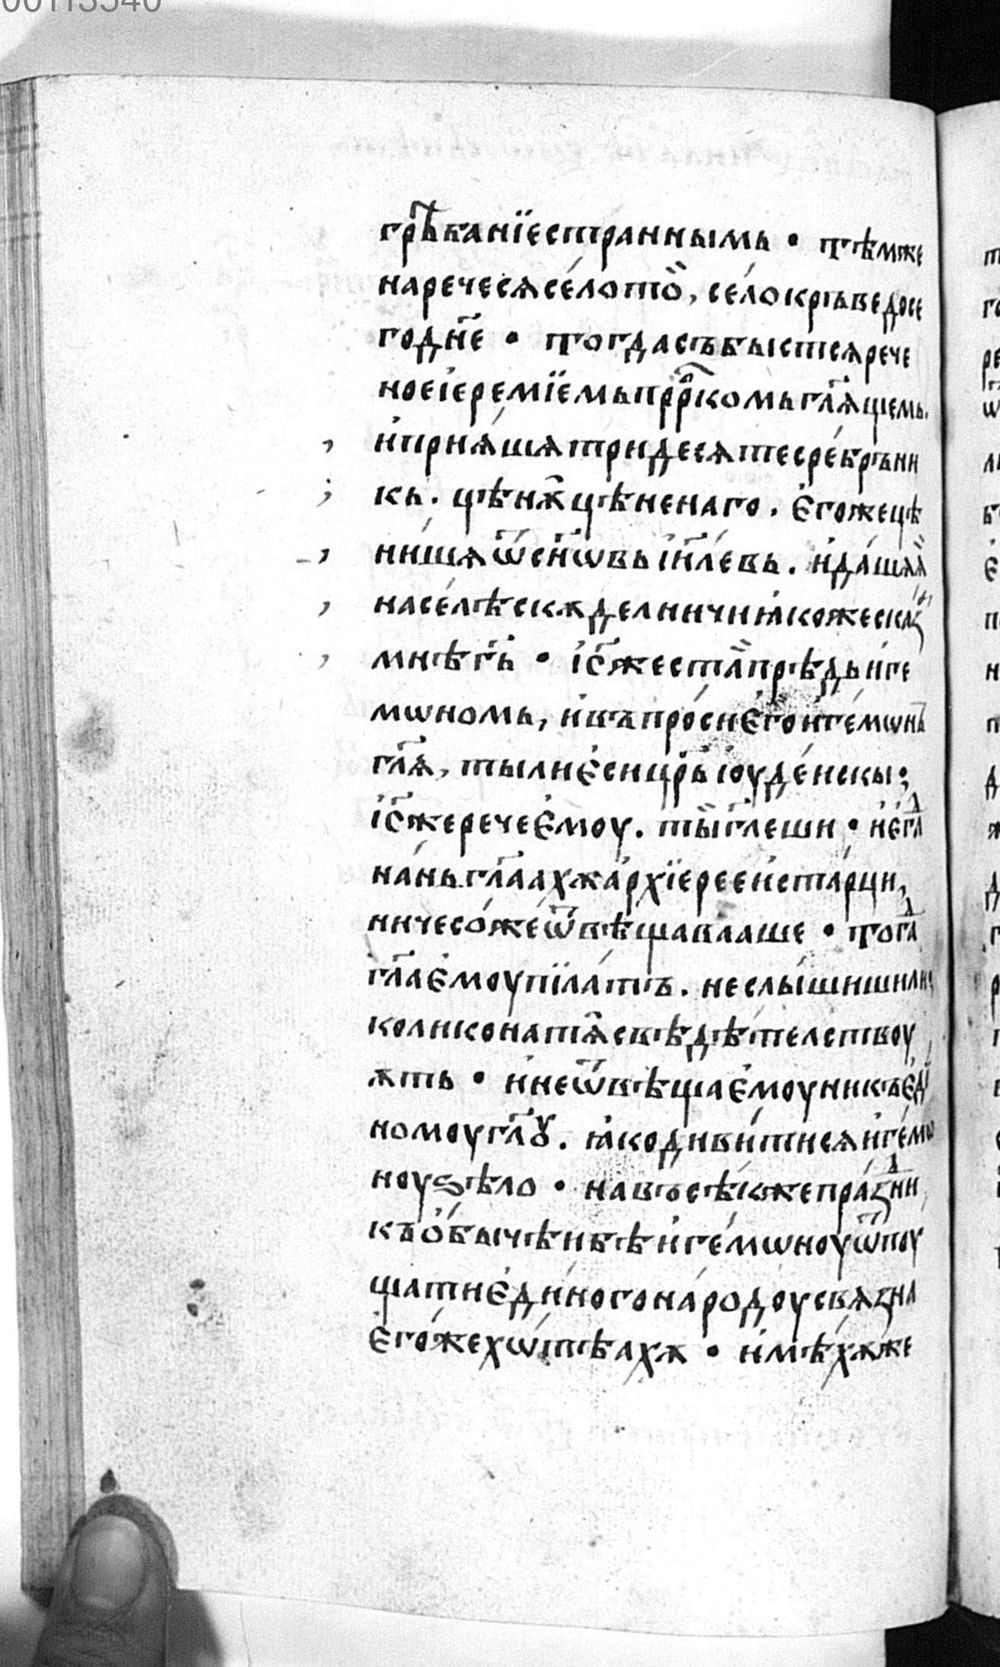 00113540
грѣбанїе страннымь · тѣмже
наречеся село то̀, село крьве до се
го дн҃е · тогда съ бысть ся рече
ное іеремїемь прр҃комь гл҃ящіемь.
и прияшя тридесяте среврьни
кь. цѣнѫ цѣненаго. егоже цѣ
нишя ѿ сн҃ѡвь іи҃левь. и дашя я̀
на селѣ скѫделничи ꙗкоже сказ
мнѣ гь҃ · іс҃ же ста прѣдь иге
мѡномь, и въпроси его игемѡнь
гл҃я, ты ли еси цр҃ь іоудеискы;
іс҃ же рече емоу. ты гл҃еши · и егд
на нь гл҃аахѫ архїерее и старци,
ничесоже ѿвѣщавааше · тогд
гл҃а емоу пїлатъ. не слышиши ли
колико на тя свѣдѣтелствоу
ѫть · и не ѿвѣща емоу ни къ еди
номоу гл҃ꙋ. ꙗко дивити ся игемѡ
ноу ѕѣло · на въсѣкь же праздни
къ обычѣи бѣ игемѡноу ѿпоу
щати единого народоу связна
егоже хѡтѣахѫ · имѣхѫ же